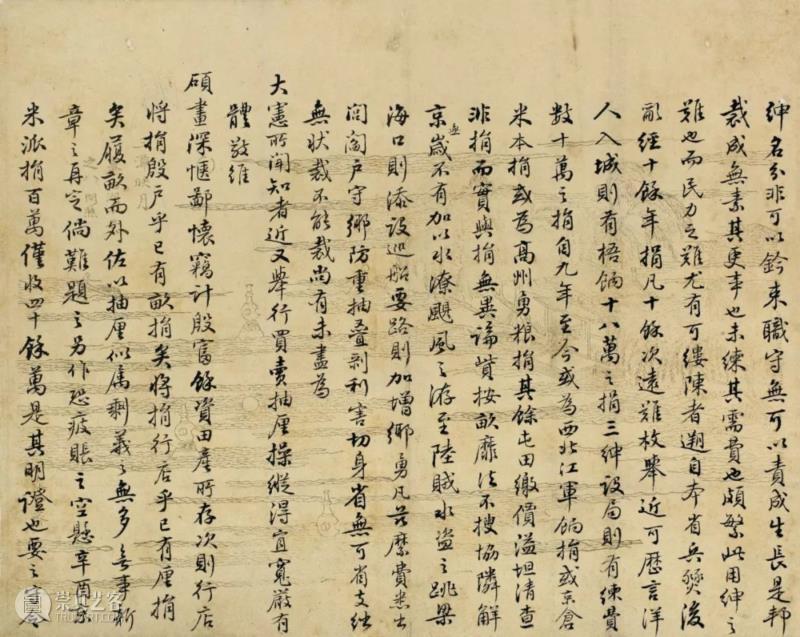 紳名分非可以鈐束職守無可以責成生長是邦
裁成無素其更事也未練其需費也頗繁此用紳之
難也而民力之難尤有可縷陳者溯自本省兵燹後
敝經十餘年捐凡十餘次遠難枚舉近可歷言洋
人入城則有梧餉十八萬之捐三紳設局則有練費
數十萬之捐自九年至今或為西北江軍餉捐或京倉
米本捐或為高州勇糧捐其餘屯田繳價溢坦清查
非捐而實與捐無異論貲按畝靡法不搜協隣解
京無歲不有加以水潦颶風之洊至陸賊水盜之跳梁
海口則添設巡船要路則加增鄉勇凡茲縻費悉出
閭閻戶守鄉防重抽疊剝利害切身省無可省支絀
無狀裁不能裁尚有未盡為
大憲所聞知者近又舉行買賣抽厘操縱得宜寬嚴有
體敬維
碩畫深愜鄙懷竊計殷富餘資田產所存次則行店
將捐殷戶乎已有畝捐矣將捐行店乎已有厘捐
矣履畝而外佐以抽厘似属剩義之無多毛事析
章之再定倘難題之另作恐疲賬之空懸辛酉京
米派捐百萬僅收四十餘萬是其明證也要之
崇真艺客